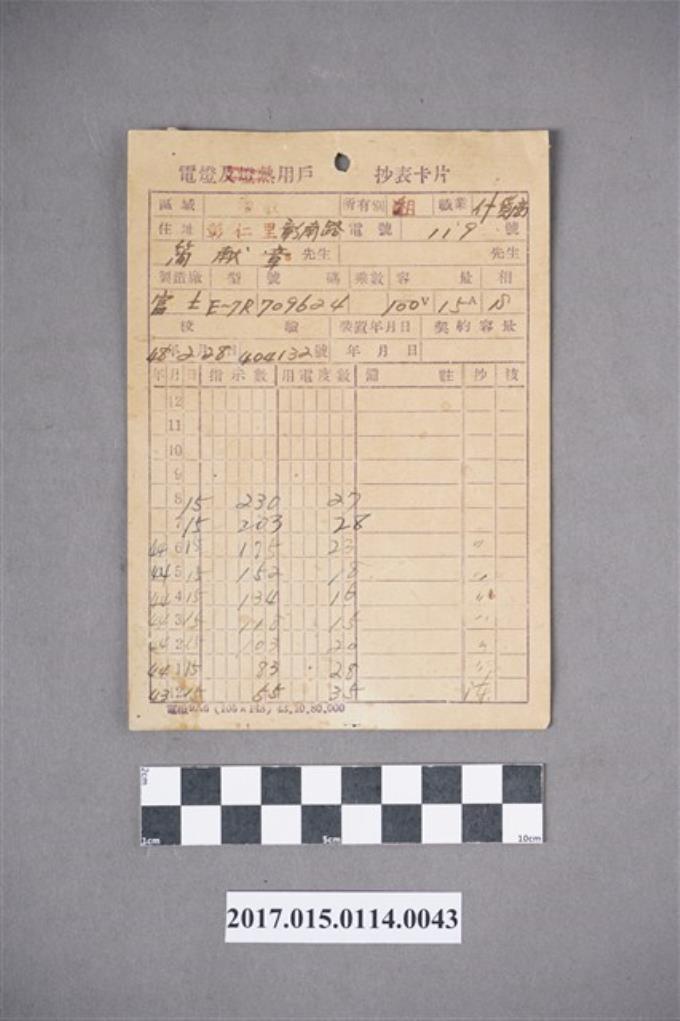 電燈及電熱用戶 抄表卡片
區域 所有別 職業 什貨商
住址 彰仁里 彰南路 電號 119 號
簡献章 先生 先生
製造廠 型 號 碼 乘數 容 量 相
富士 E-7R 709624 100V 15A 1S
校 驗 裝置年月日 契約容量
48年2月28日 404132號 年 月 日
年 月 日 指示數 用電度數 備 註 抄 技
12
11
10
9
8 15 230 27
7 15 203 28
44 6 15 175 23 〃
44 5 15 152 18 〃
44 4 15 134 16 〃
44 3 15 118 15 〃
44 2 15 103 20 〃
44 1 15 83 28 〃
43 12 15 55 35
2cm
1cm 5cm 10cm
2017.015.0114.0043